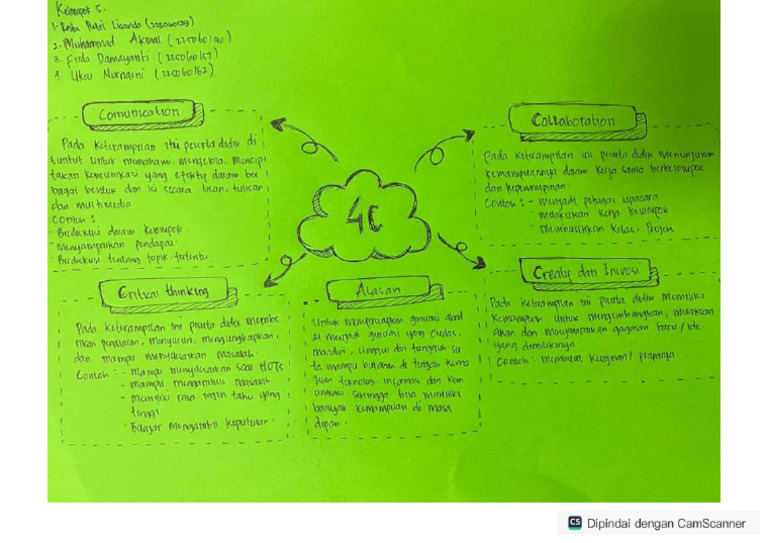 Kelompok 5.
1. Putri Lisando
2. Muhammad Akmal
3. Firda Damayanti
4. Ukeu Nurnaeni
Comunication
Pada Keterampilan ini peserta didik di
tuntut untuk memahami, mengelola, mencip
takan komunikasi yang efektif dalam ber
bagai bentuk dan isi secara lisan, tulisan
dan multimedia.
Contoh :
- Berdiskusi dalam kelompok.
- Menyampaikan pendapat.
- Berdiskusi tentang topik tertentu
4C
Collaboration
Pada Keterampilan ini peserta didik menunjukan
kemampuannya dalam kerja sama berkelompok
dan kepemimpinan.
Contoh : - menjadi petugas upacara
melakukan kerja kelompok
- Membersihkan kelas, Projek
Critical thinking
Pada Keterampilan ini peserta didik membe
rikan penalaran, menyusun, mengungkapkan,
dan mampu menyelesaikan masalah.
Contoh : - mampu menyelesaikan soal HOTS
- mampu menganalisis masalah
- memiliki rasa ingin tahu yang
tinggi
- Belajar mengambil keputusan.
Alasan
Untuk mempersiapkan generasi abad
21 menjadi generasi yang cerdas,
mandiri, unggul dan tangguh se
ta mampu bertahan di tengah kema
juan teknologi, informasi dan kom
unikasi sehingga bisa memiliki
banyak kemampuan di masa
depan.
Creatif dan Inovasi
Pada Keterampilan ini peserta didik memiliki
kemampuan untuk mengembangkan, melaksan
akan dan menyampaikan gagasan baru / ide
yang dimilikinya.
Contoh : membuat Kerajinan / prakarya
CS Dipindai dengan CamScanner